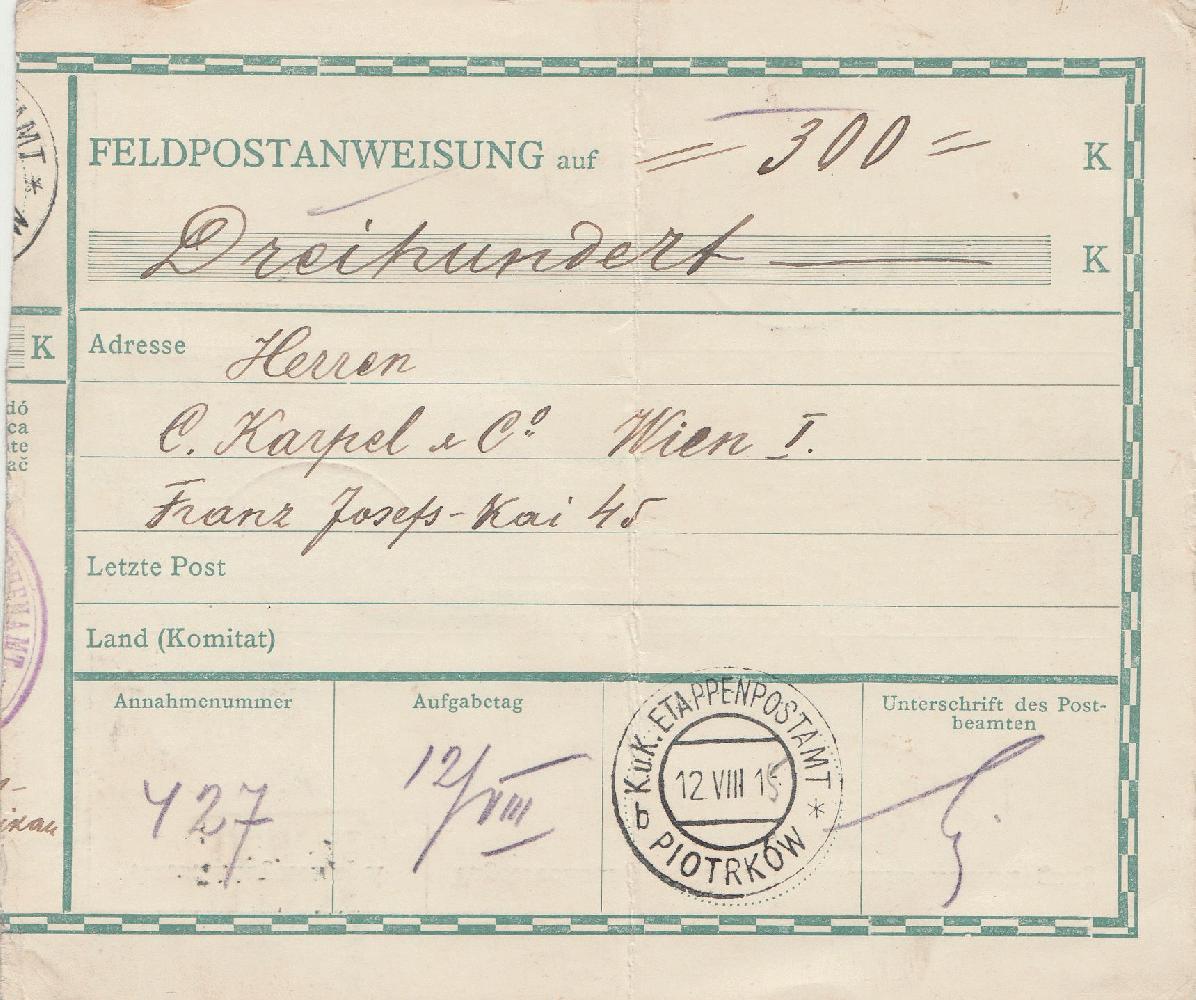 FELDPOSTANWEISUNG auf = 300 = K
Dreihundert — K
K
Adresse Herren
C. Karpel & Cº Wien I.
Franz Josefs-Kai 45
Letzte Post
Land (Komitat)
dó
ca
te
ač
Annahmenummer
427
Aufgabetag
12/VIII
K.u.K. ETAPPENPOSTAMT *
12 VIII 15
b PIOTRKÓW
Unterschrift des Post-
beamten
AMT *
PENAMT